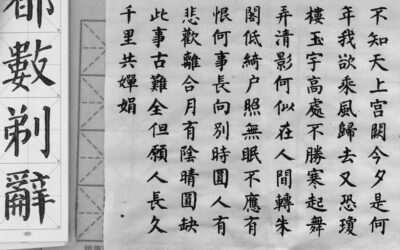 不知天上宫闕今夕是何
年我欲乘風歸去又恐瓊
樓玉宇高處不勝寒起舞
弄清影何似在人間轉朱
閣低綺户照無眠不應有
恨何事長向別時圓人有
悲歡離合月有陰晴圓缺
此事古難全但願人長久
千里共嬋娟
都數剃辭